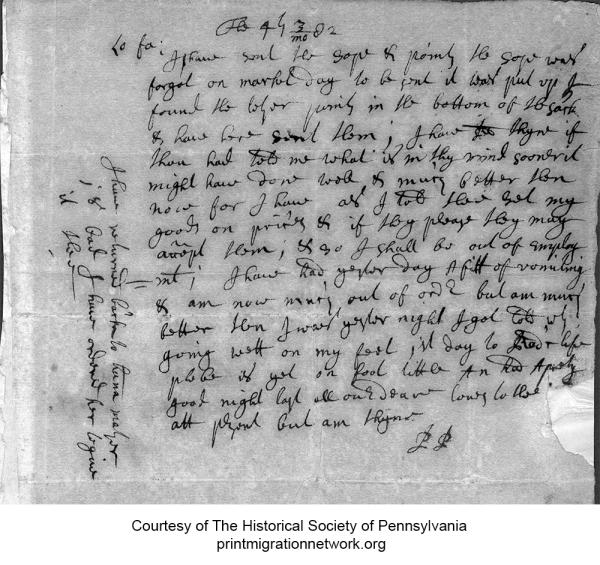 The 4th 3/mo 82
Lo fa:
I have sent the sope & points the sope was
forgot on market day to be sent it was put up I
found the other points in the bottom of the sack
& have here sent them; I have thyne if
thou had told me what is in thy mind sooner it
might have done well & much better then
now for I have as I told thee set my
goods on prices & if they please they may
accept them; & so I shall be out of employ
mt; I have had yester day A fitt of vomiting
& am now much out of ordr but am much
better then I was yester night I got
going well on my feet ist day to life
is yet on foot little An had A prety
good night last all our deare loves to thee
att psent but am thyne
I have returned hana
; & bad I have ordered her to give
it thee
Courtesy of The Historical Society of Pennsylvania
printmigrationnetwork.org